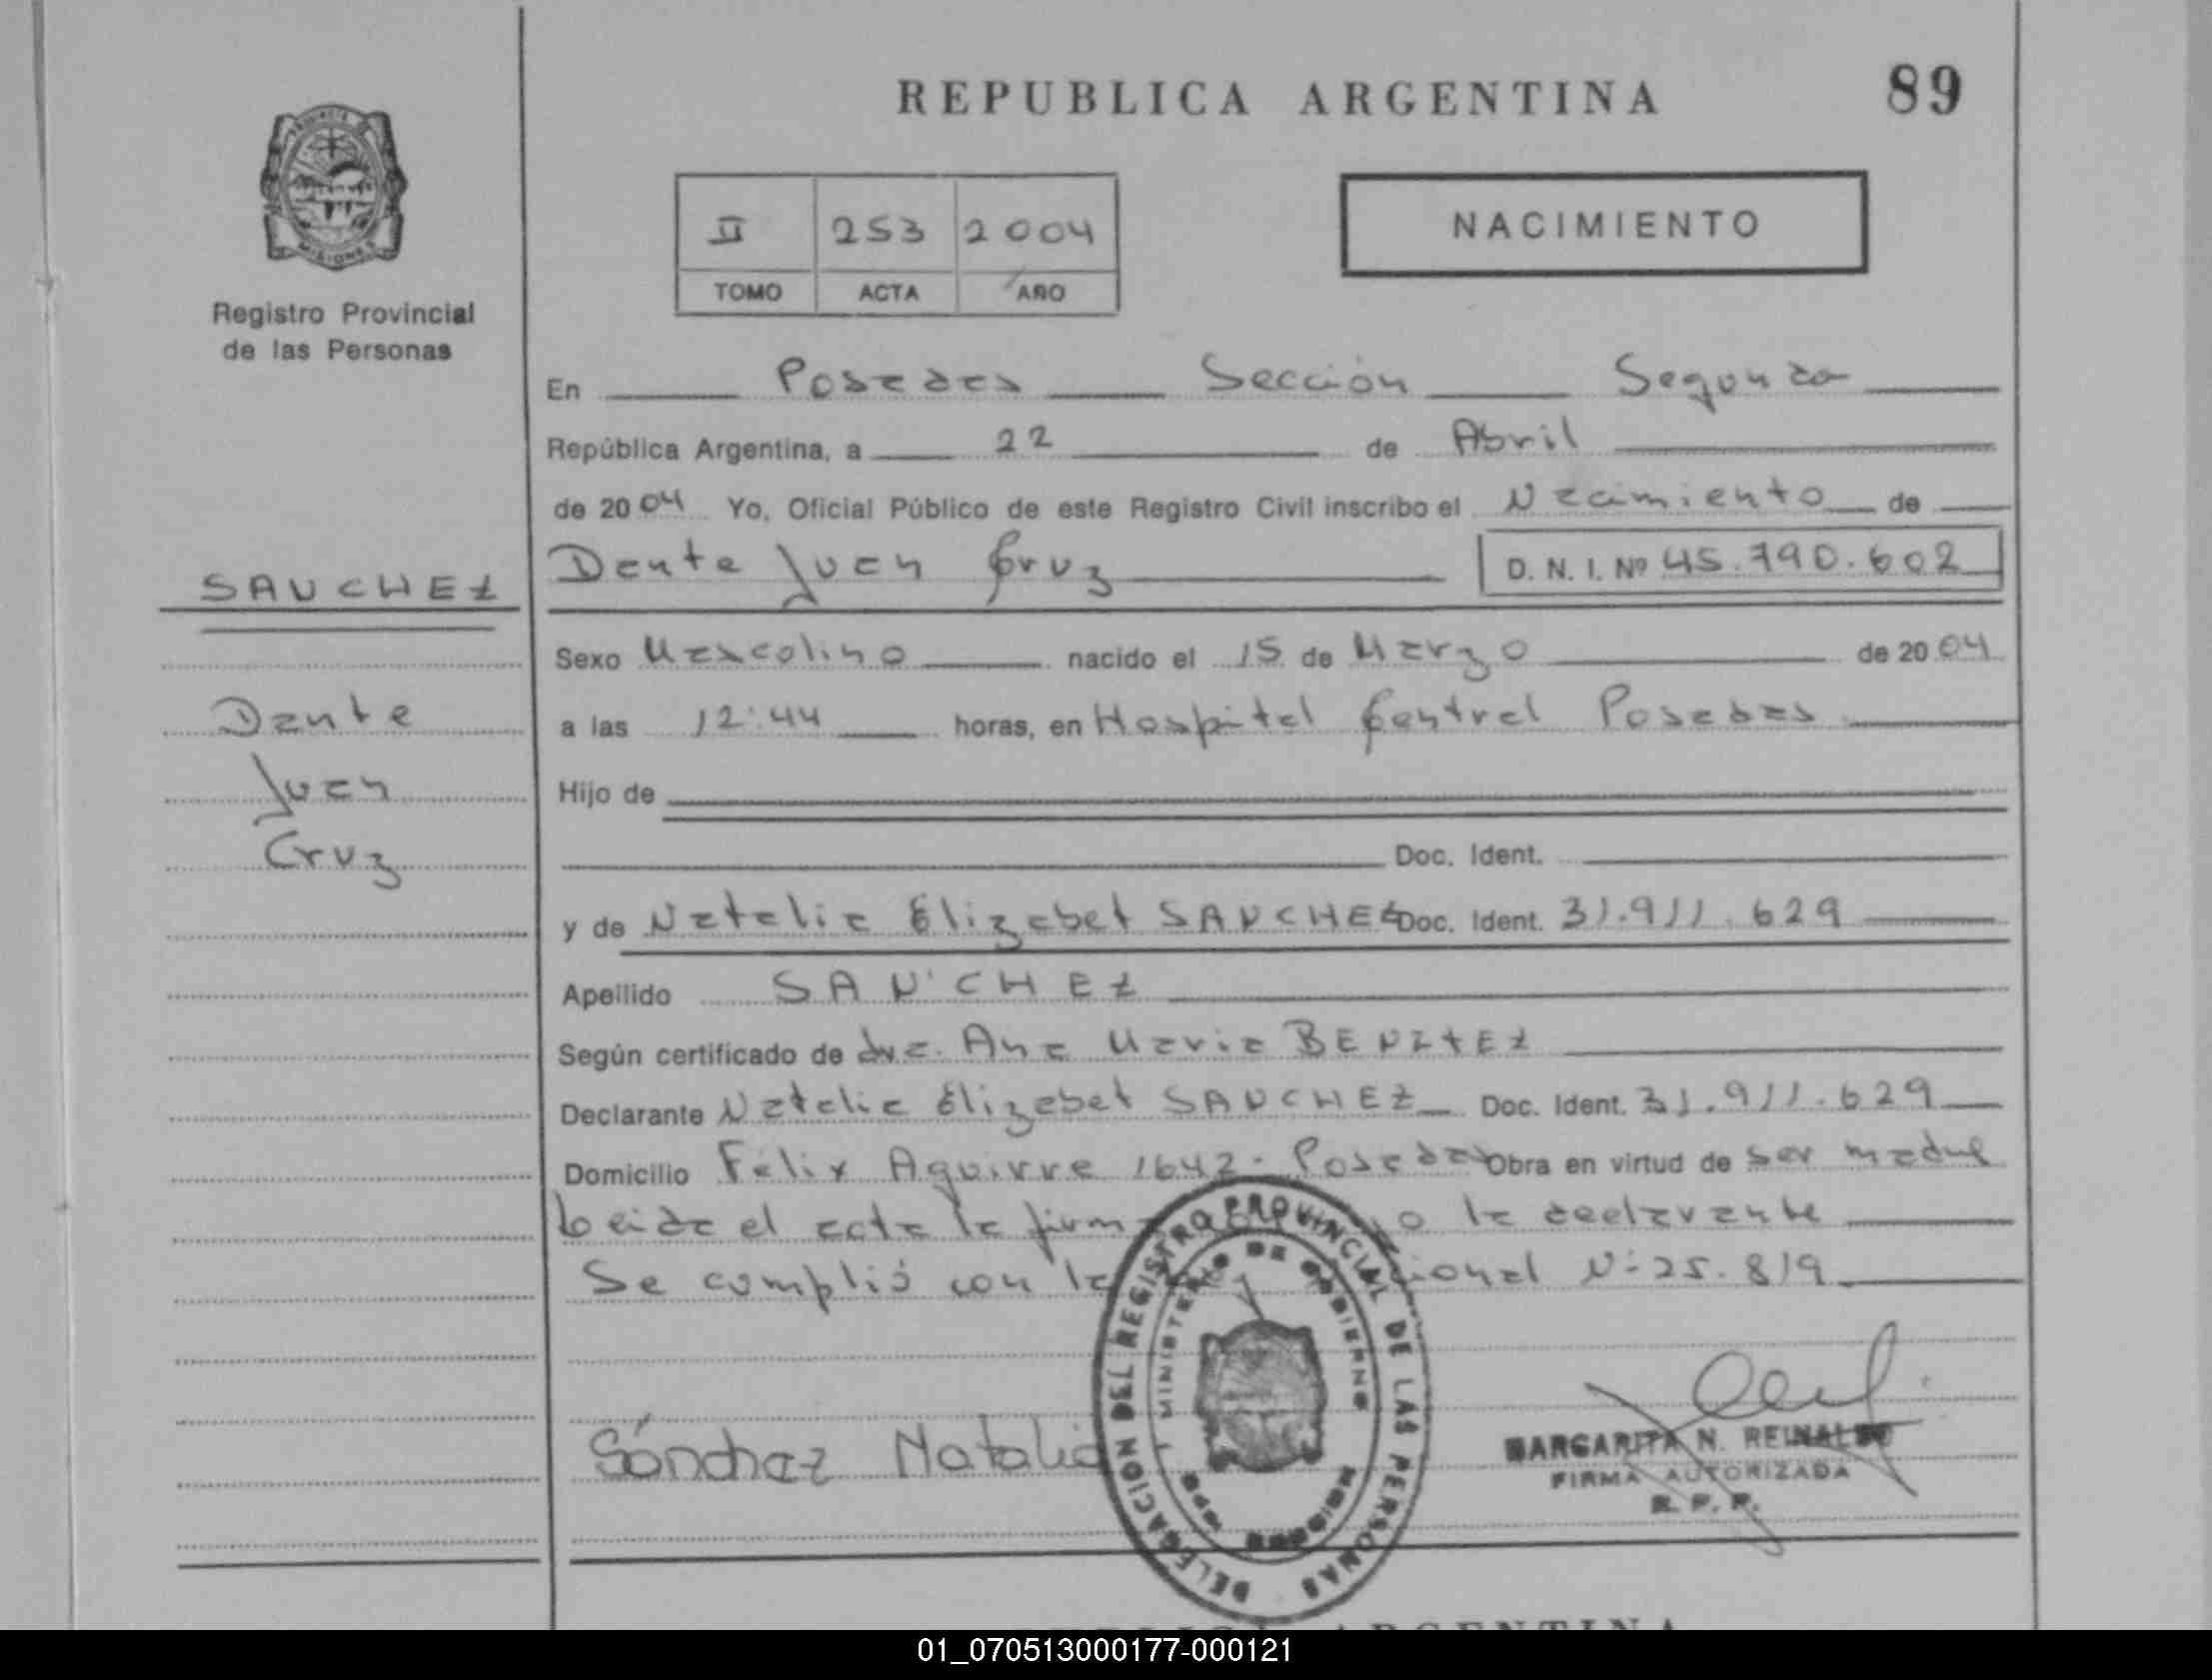 REPUBLICA ARGENTINA
89
II 253 2004
TOMO ACTA AÑO
NACIMIENTO
Registro Provincial
de las Personas
En Posadas Sección Segunda
República Argentina, a 22 de Abril
de 2004 Yo, Oficial Público de este Registro Civil inscribo el Nacimiento de
Dante Juan Cruz D. N. I. Nº 45.790.602
SANCHEZ
Dante
Juan
Cruz
Sexo Masculino nacido el 15 de Marzo de 2004
a las 12:44 horas, en Hospital Central Posadas
Hijo de
Doc. Ident.
y de Natalia Elizabet SANCHEZ Doc. Ident. 31.911.629
Apellido SANCHEZ
Según certificado de dra. Ana Maria BENITEZ
Declarante Natalia Elizabet SANCHEZ Doc. Ident. 31.911.629
Domicilio Félix Aguirre 1642 - Posadas Obra en virtud de ser madre
Leida el acta la firma la declarante
Se cumplió con la Ley N° 25.819
DELEGACION DEL REGISTRO PROVINCIAL DE LAS PERSONAS
MINISTERIO DE GOBIERNO
MISIONES
Sánchez Natalia
MARGARITA N. REINALDO
FIRMA AUTORIZADA
R. P. P.
REPUBLICA ARGENTINA
01_070513000177-000121